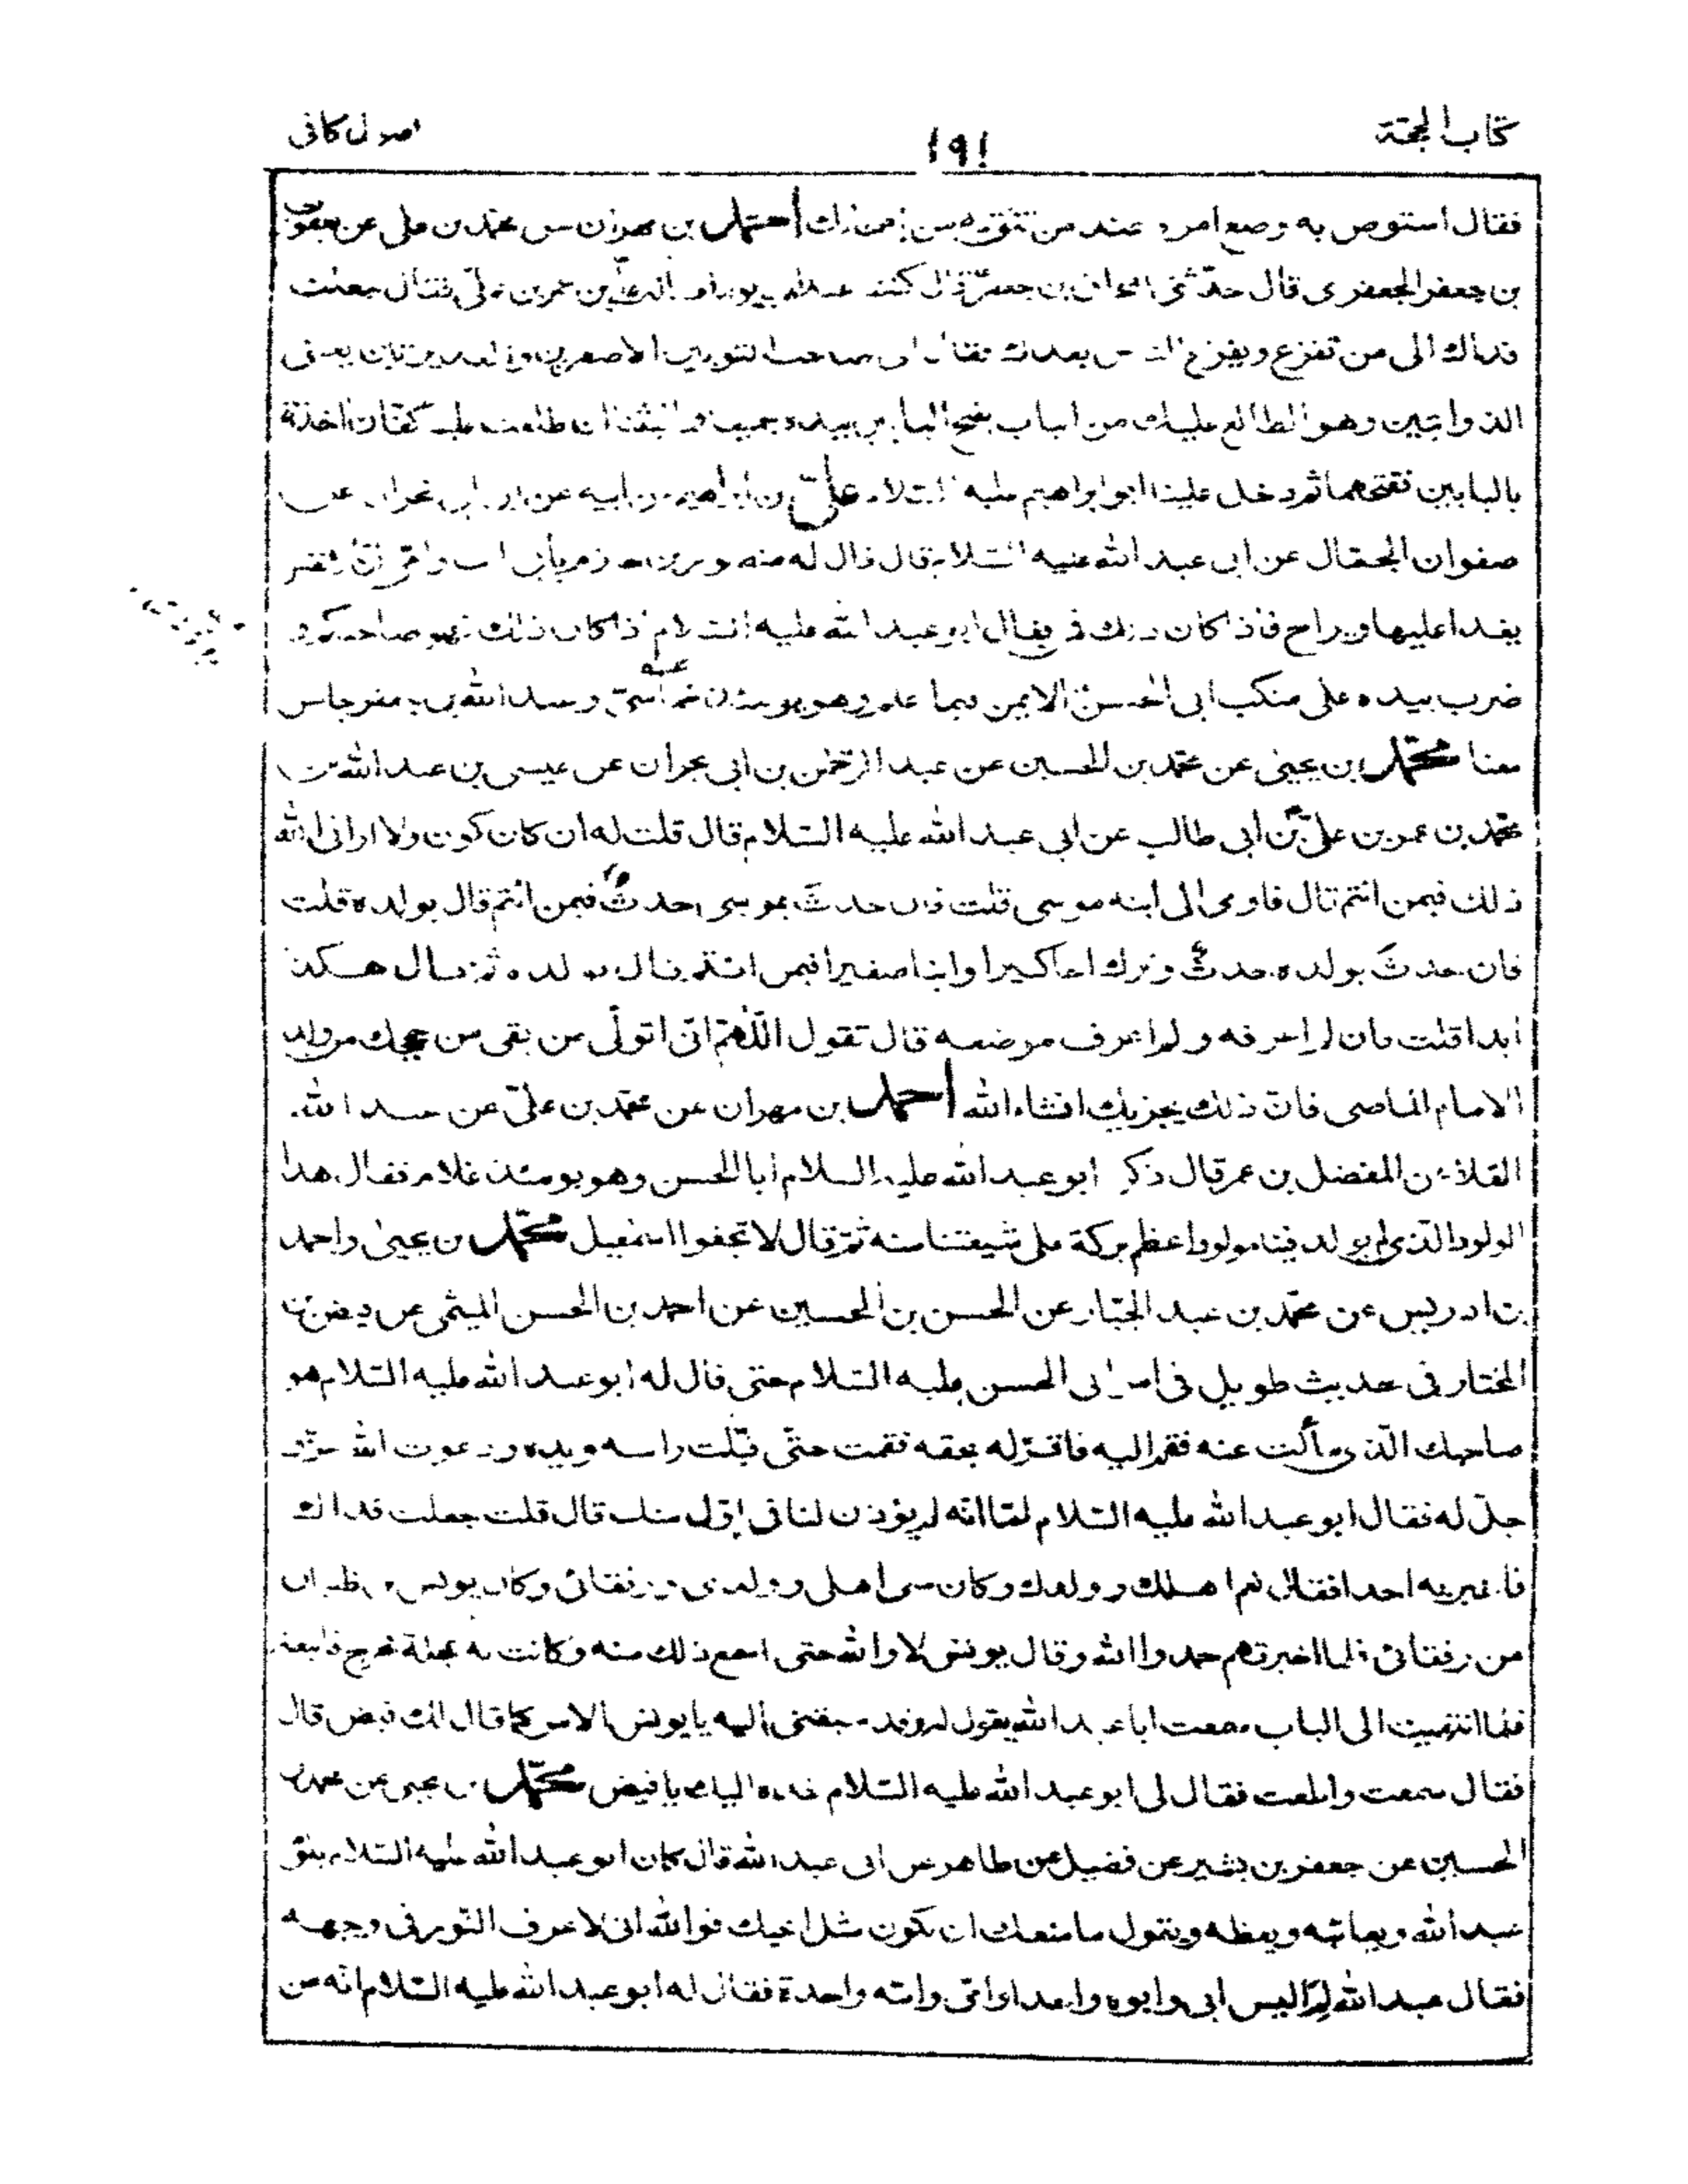 كتاب الحجة
١٩١
اصول كافى
فقال استوص به وضع امره عند من تثق به من احمد بن مهران عن محمد بن على عن يعقوب
بن جعفر الجعفرى قال حدّثنى اسحاق بن جعفر قال كنت عند ابى يوما فسأله على بن عمر بن على فقال جعلت
فداك الى من نفزع ويفزع الناس بعدك فقال الى صاحب الثوبين الاصفرين والغديرتين يعنى
الذوابتين وهو الطالع عليك من الباب يفتح البابين بيده جميعا فما لبثنا ان طلعت علينا كفّان آخذة
بالبابين ففتحهما ثم دخل علينا ابو ابراهيم عليه السّلام علىّ بن ابراهيم عن ابيه عن ابن ابى نجران عن
صفوان الجمّال عن ابى عبد الله عليه السّلام قال قال له منصور بن حازم بأبى انت وامّى انّ الانفس
يغدا عليها ويراح فاذا كان ذلك فمن فقال ابو عبد الله عليه السّلام اذا كان ذلك فهو صاحبكم و
ضرب بيده على منكب ابى الحسن الايمن فيما اعلم وهو يومئذ خماسىّ وعبد الله بن جعفر جالس
معنا محمّد بن يحيى عن محمّد بن الحسين عن عبد الرّحمن بن ابى نجران عن عيسى بن عبد الله بن
محمّد بن عمر بن علىّ بن أبى طالب عن ابى عبد الله عليه السّلام قال قلت له ان كان كون ولا ارانى الله
ذلك فبمن ائتم قال فاومى الى ابنه موسى قلت فان حدثَ بموسى حدثٌ فبمن ائتم قال بولده قلت
فان حدثَ بولده حدثٌ وترك اخا كبيرا وابنا صغيرا فبمن ائتم قال بولده ثم قال هكذا
ابدا قلت فان لم اعرفه ولم اعرف موضعه قال تقول اللّهمّ انّى اتولّى من بقى من حججك من ولد
الامام الماضى فانّ ذلك يجزيك انشاء الله أحمد بن مهران عن محمّد بن علىّ عن عبد الله
القلاء عن المفضل بن عمر قال ذكر ابو عبد الله عليه السلام أبا الحسن وهو يومئذ غلام فقال هذا
المولود الّذى لم يولد فينا مولود اعظم بركة على شيعتنا منه ثمّ قال لا تجفوا اسمعيل محمّد بن يحيى واحمد
بن ادريس عن محمّد بن عبد الجبّار عن الحسن بن الحسين عن احمد بن الحسن الميثمى عن فيض بن
المختار فى حديث طويل فى امر ابى الحسن عليه السّلام حتى قال له ابو عبد الله عليه السّلام هو
صاحبك الّذى سألت عنه فقم اليه فاقرّ له بحقه فقمت حتّى قبّلت راسه ويده ودعوت الله عزّ و
جلّ له فقال ابو عبد الله عليه السّلام امّا انّه لم يؤذن لنا فى اوّل منك قال قلت جعلت فداك
فاخبر به احدا فقال نعم اهلك وولدك وكان معى اهلى وولدى ورفقائى وكان يونس بن ظبيان
من رفقائى فلما اخبرتهم حمدوا الله وقال يونس لا والله حتى اسمع ذلك منه وكانت به عجلة فخرج فاتبعته
فلما انتهيت الى الباب سمعت ابا عبد الله يقول له وقد سبقنى اليه يا يونس الامر كما قال لك فيض قال
فقال سمعت واطعت فقال لى ابو عبد الله عليه السّلام خذه اليك يا فيض محمّد بن يحيى عن محمد بن
الحسين عن جعفر بن بشير عن فضيل عن طاهر عن ابى عبد الله قال كان ابو عبد الله عليه السّلام يلوم
عبد الله ويعاتبه ويعظه ويقول ما منعك ان تكون مثل اخيك فوالله انى لاعرف النّور فى وجهه
فقال عبد الله لم اليس ابى وابوه واحدا وامّى وامّه واحدة فقال له ابو عبد الله عليه السّلام انّه من